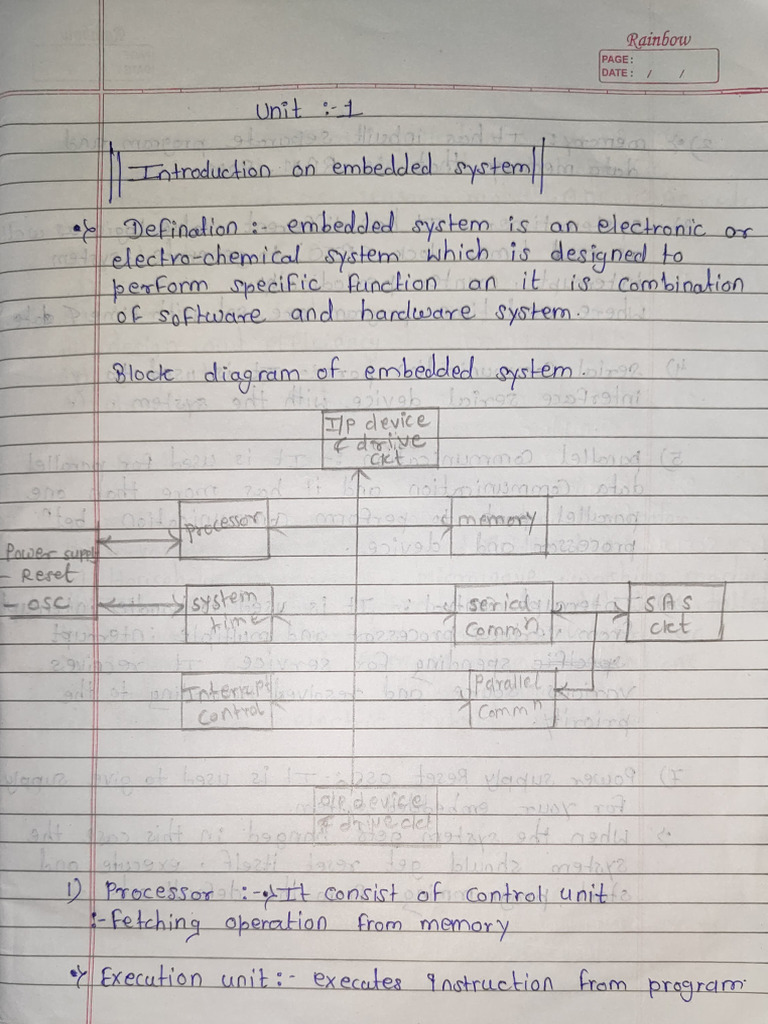 Rainbow
PAGE:
DATE: / /
Unit :- 1
Introduction on embedded system
Defination :- embedded system is an electronic or
electro-chemical system which is designed to
perform specific function an it is combination
of software and hardware system.
Block diagram of embedded system.
I/P device
& drive
ckt
processor
memory
Power supply
- Reset
- OSC
system
time
serial
Commⁿ
SAS
ckt
Interrupt
Control
Parallel
Commⁿ
O/P device
& drive ckt
1) Processor :-> It consist of control unit :
:- Fetching operation from memory
Execution unit :- executes instruction from program.